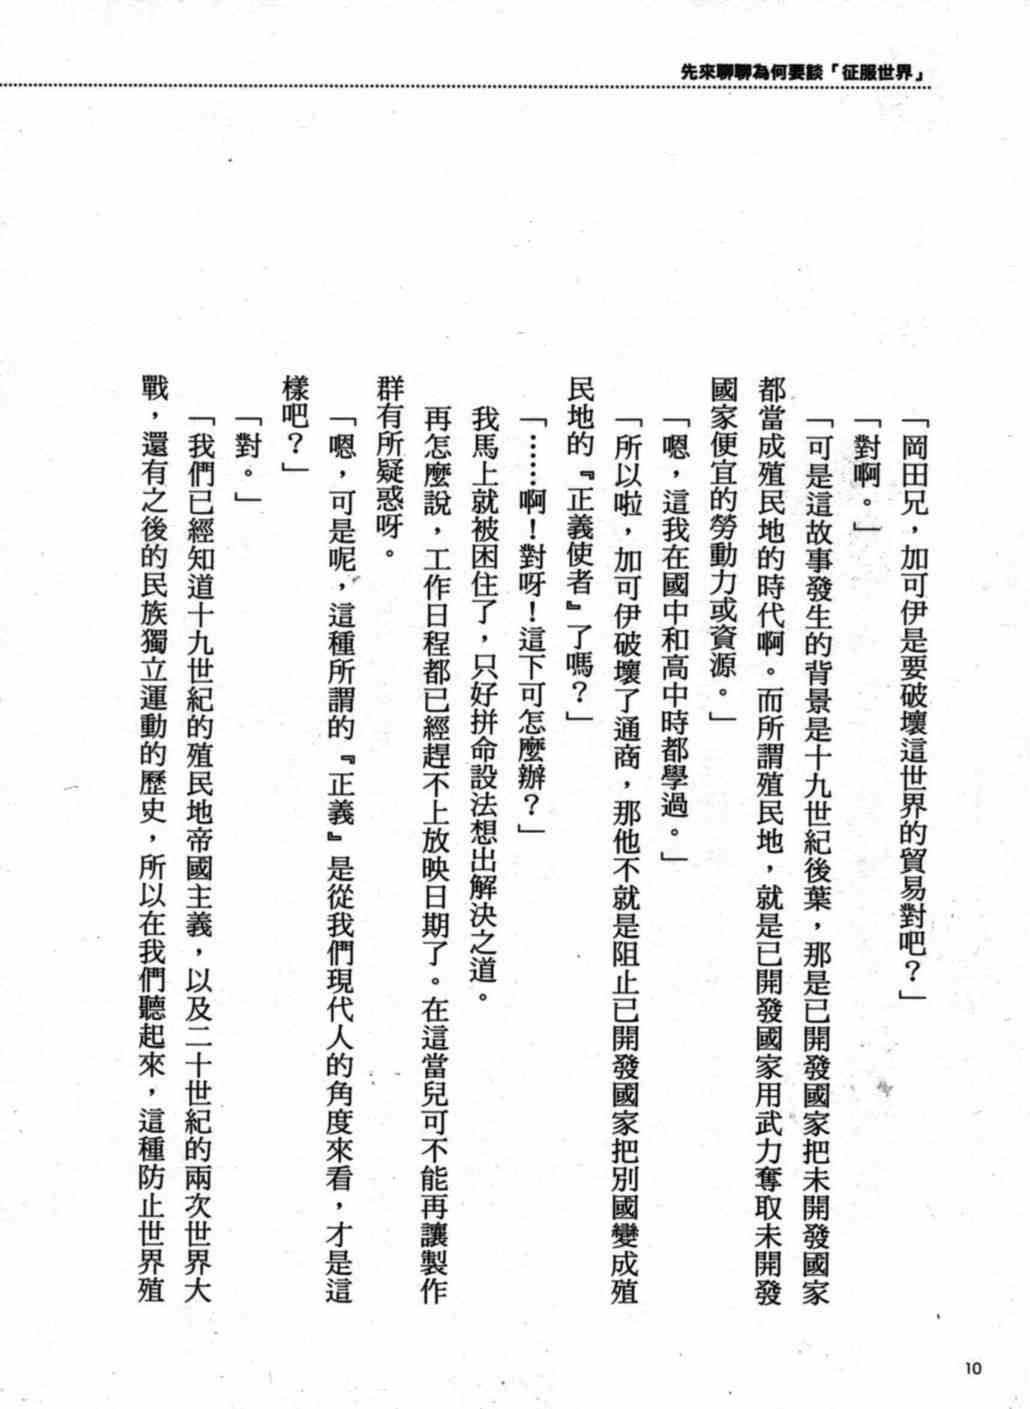 先來聊聊為何要談「征服世界」
「岡田兄，加可伊是要破壞這世界的貿易對吧？」
「對啊。」
「可是這故事發生的背景是十九世紀後葉，那是已開發國家把未開發國家
都當成殖民地的時代啊。而所謂殖民地，就是已開發國家用武力奪取未開發
國家便宜的勞動力或資源。」
「嗯，這我在國中和高中時都學過。」
「所以啦，加可伊破壞了通商，那他不就是阻止已開發國家把別國變成殖
民地的『正義使者』了嗎？」
「……啊！對呀！這下可怎麼辦？」
我馬上就被困住了，只好拼命設法想出解決之道。
再怎麼說，工作日程都已經趕不上放映日期了。在這當兒可不能再讓製作
群有所疑惑呀。
「嗯，可是呢，這種所謂的『正義』是從我們現代人的角度來看，才是這
樣吧？」
「對。」
「我們已經知道十九世紀的殖民地帝國主義，以及二十世紀的兩次世界大
戰，還有之後的民族獨立運動的歷史，所以在我們聽起來，這種防止世界殖
10